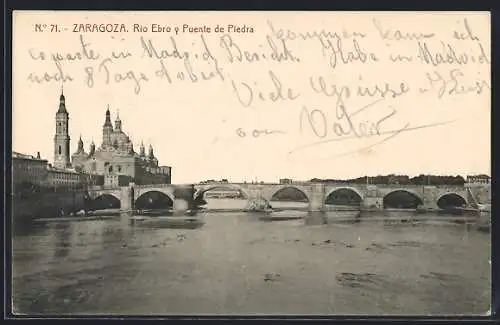 N.º 71. - ZARAGOZA. Río Ebro y Puente de Piedra
kommen kann ich
in Madrid Bericht. Habe in Madrid
noch 8 Tage
Viele Grüsse u.
von
Vater